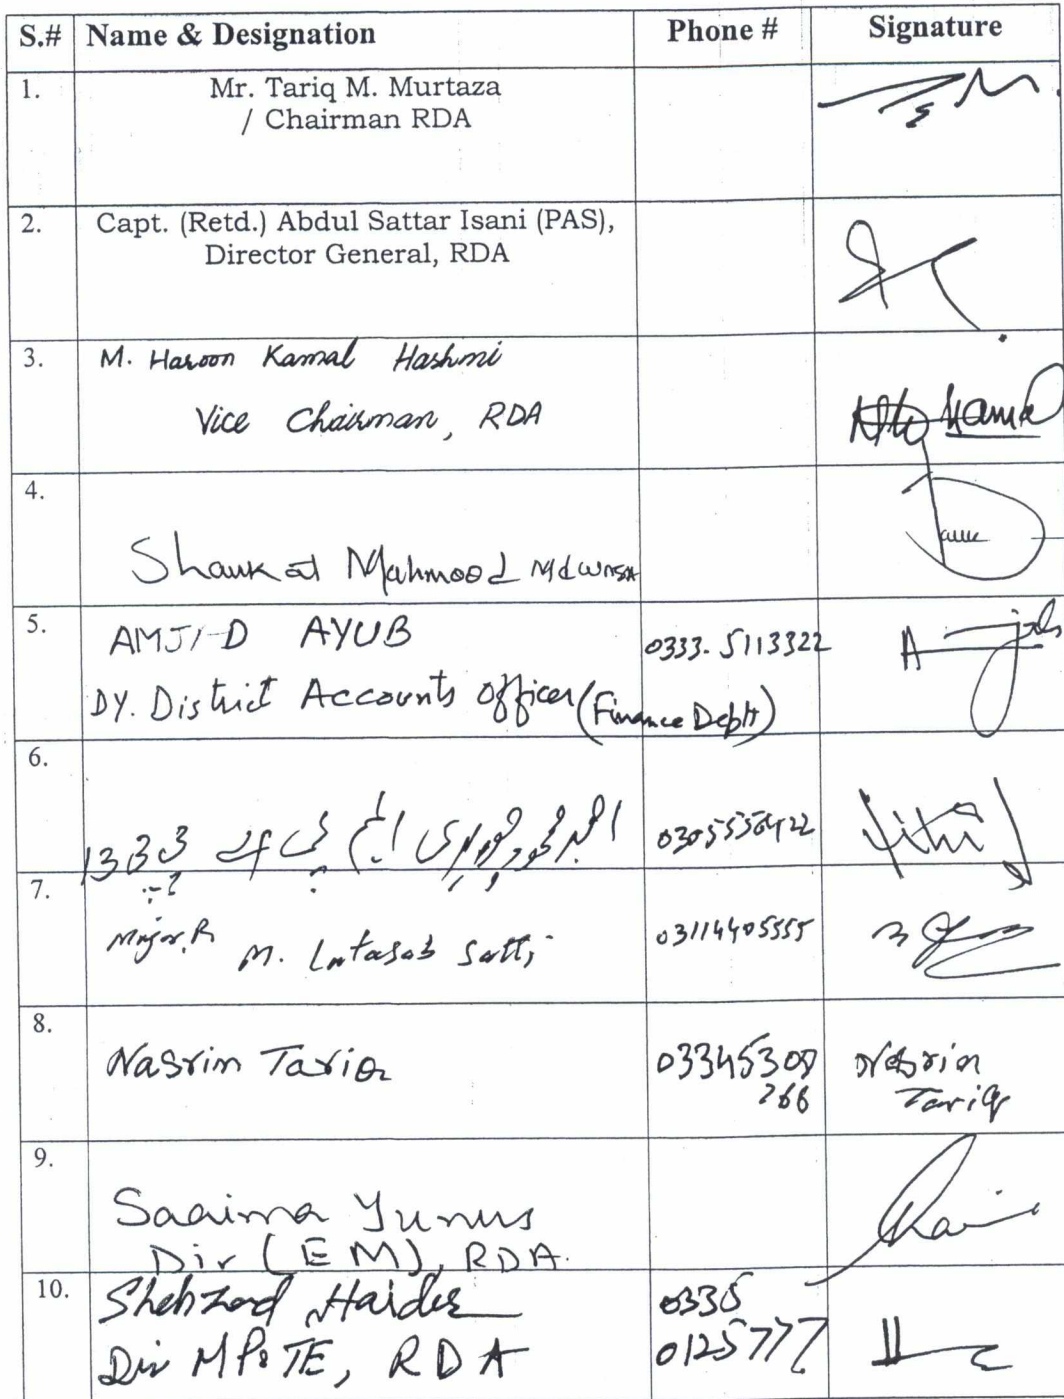 S.# Name & Designation Phone # Signature
1. Mr. Tariq M. Murtaza
/ Chairman RDA
2. Capt. (Retd.) Abdul Sattar Isani (PAS),
Director General, RDA
3. M. Haroon Kamal Hashmi
Vice Chairman, RDA
4.
Shaukat Mahmood MD WASA
5. AMJID AYUB 0333-5113322
DY. District Accounts Officer (Finance Deptt)
6.
7.
Major. R M. Latasab Satti 03114405555
8.
Nasrim Tariq Nasrin
Tariq
9.
Saaima Yunus
Dir (EM), RDA.
10. Shehzad Haider 0335
Dir MP&TE, RDA 0125777